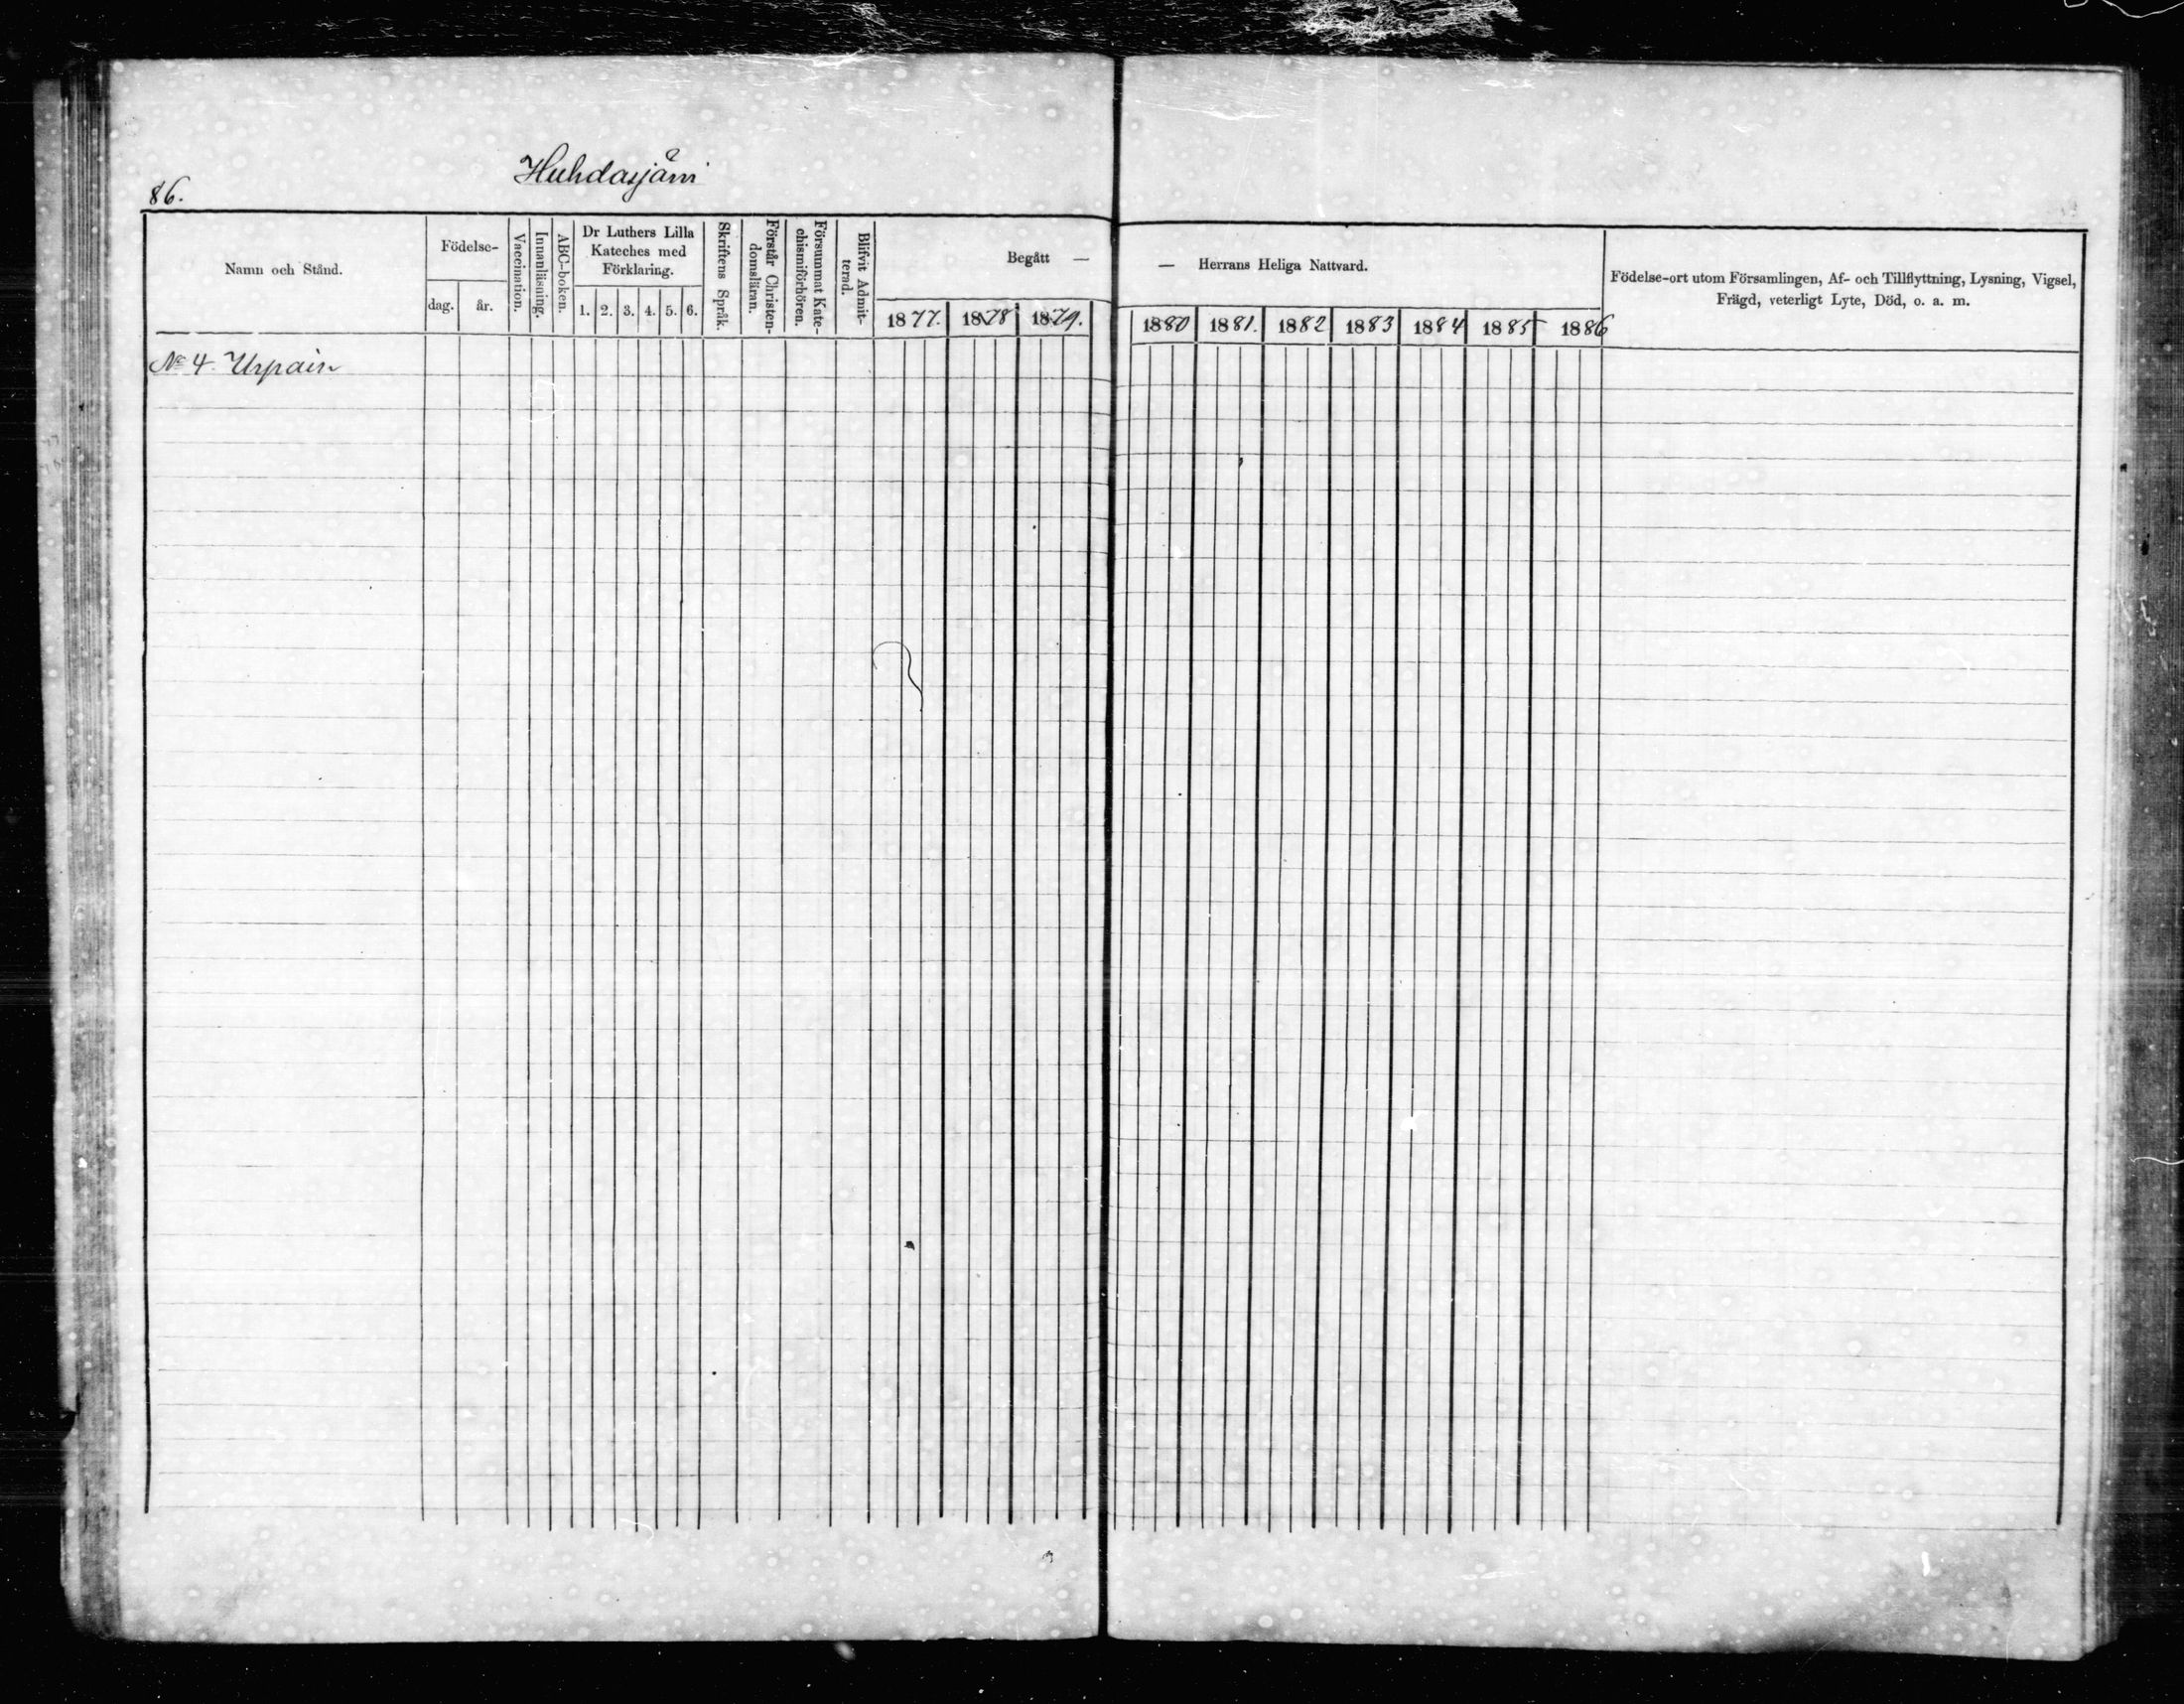 86.
Huhdasjärvi
Namn och Stånd.
Födelse-
dag.
år.
Vaccination.
Innanläsning.
ABC-boken.
Dr Luthers Lilla
Kateches med
Förklaring.
1. 2. 3. 4. 5. 6.
Skriftens Språk.
Förstår Christen-
domsläran.
Försummat Kate-
chismiförhören.
Blifvit Admit-
terad.
Begått —
1877. 1878 1879.
— Herrans Heliga Nattvard.
1880 1881. 1882 1883 1884 1885 1886
Födelse-ort utom Församlingen, Af- och Tillflyttning, Lysning, Vigsel,
Frägd, veterligt Lyte, Död, o. a. m.
No 4 Urpain